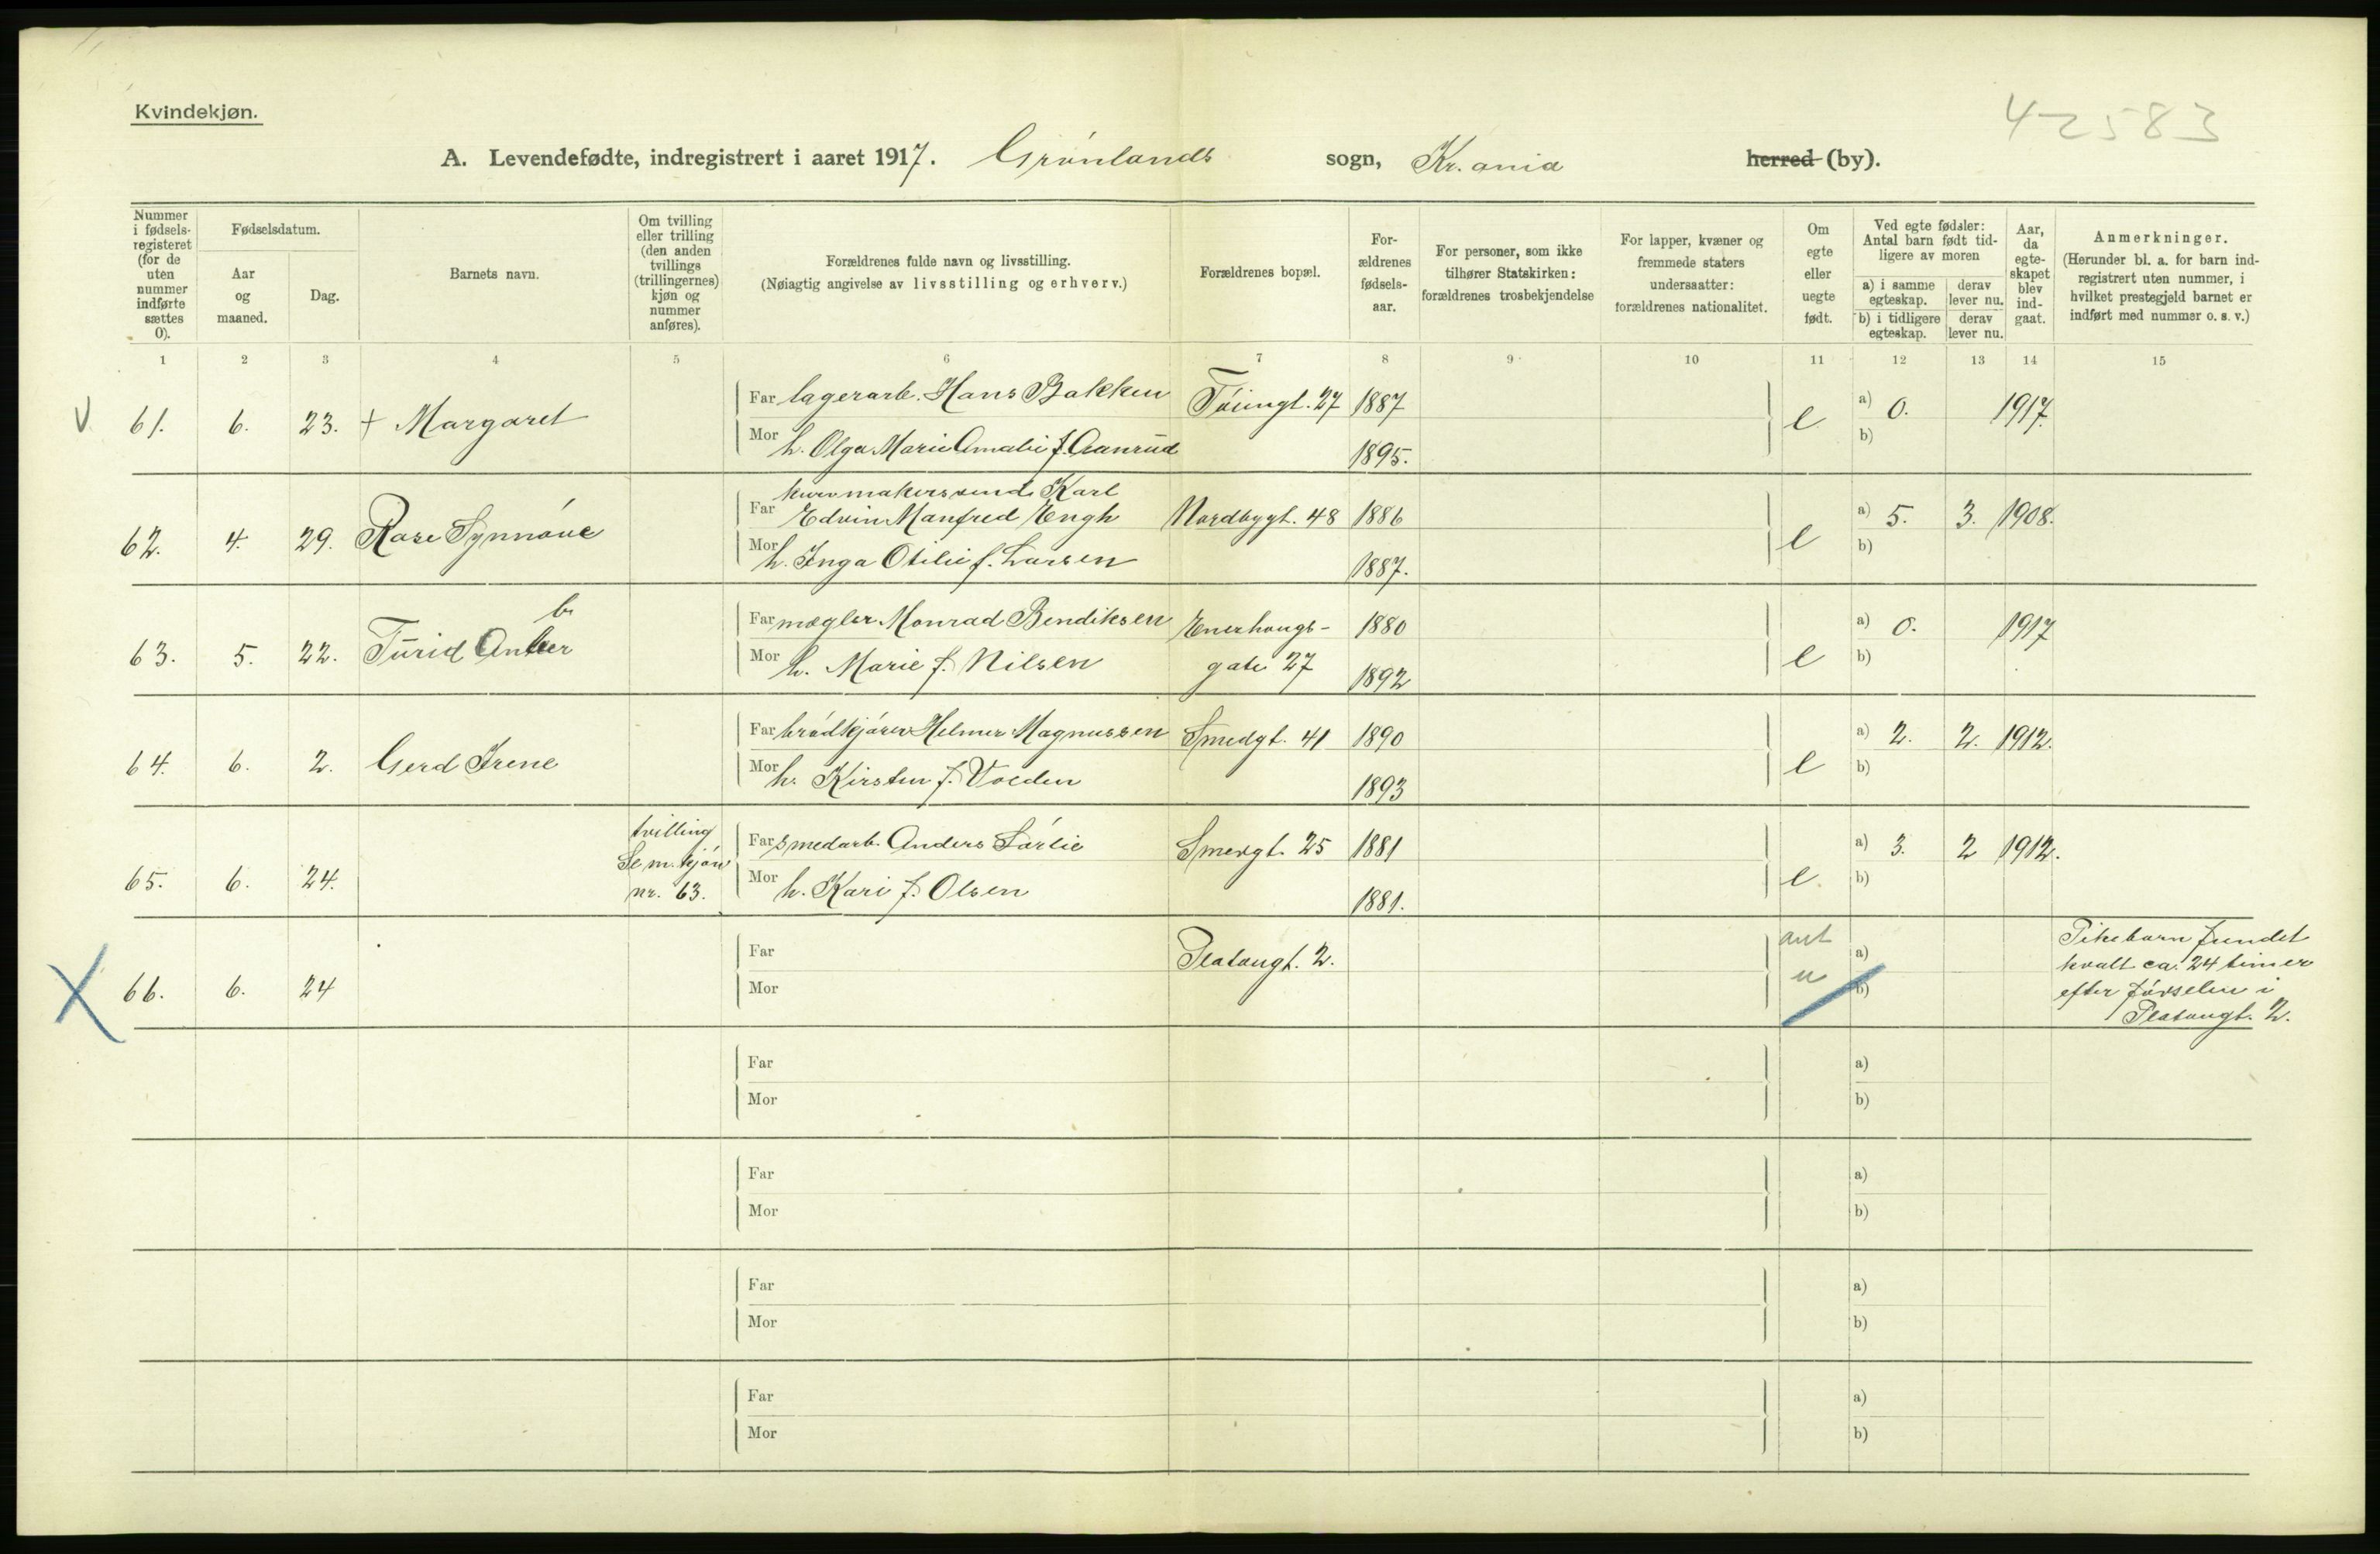 Kvindekjøn.
42583
A. Levendefødte, indregistrert i aaret 1917. Grønlands sogn, Kr.ania herred (by).
Nummer i fødsels-registeret (for de uten nummer indførte sættes 0).
Fødselsdatum.
Aar og maaned.
Dag.
Barnets navn.
Om tvilling eller trilling (den anden tvillings (trillingernes) kjøn og nummer anføres).
Forældrenes fulde navn og livsstilling.
(Nøiagtig angivelse av livsstilling og erhverv.)
Forældrenes bopæl.
For-ældrenes fødsels-aar.
For personer, som ikke tilhører Statskirken: forældrenes trosbekjendelse
For lapper, kvæner og fremmede staters undersaatter: forældrenes nationalitet.
Om egte eller uegte født.
Ved egte fødsler: Antal barn født tid-ligere av moren
a) i samme egteskap.
derav lever nu.
b) i tidligere egteskap.
derav lever nu.
Aar, da egte-skapet blev ind-gaat.
Anmerkninger.
(Herunder bl. a. for barn ind-registrert uten nummer, i hvilket prestegjeld barnet er indført med nummer o. s. v.)
1 2 3 4 5 6 7 8 9 10 11 12 13 14 15
V 61. 6. 23. + Margaret Far lagerarb. Hans Bakken Tøiengt. 27 1887 e a) 0. 1917.
Mor h. Olga Marie Amalie f. Aanrud 1895. b)
62. 4. 29. Rose Synnøve Far kurvmakersvend Karl
Edvin Manfred Engh Nordbygt. 48 1886 e a) 5. 3. 1908.
Mor h. Inga Otilie f. Larsen 1887. b)
b
63. 5. 22. Turid Anker Far mægler Monrad Bendiksen Enerhougs- 1880 e a) 0. 1917
Mor h. Marie f. Nilsen gate 27 1892 b)
64. 6. 2. Gerd Irene Far brødkjører Helmer Magnussen Smedgt. 41 1890 e a) 2. 2. 1912.
Mor h. Kirsten f. Volden 1893 b)
65. 6. 24. tvilling
Se m. kjøn
nr. 63. Far smedarb. Anders Sørlie Smedgt. 25 1881 e. a) 3. 2 1912.
Mor h. Kari f. Olsen 1881. b)
X 66. 6. 24 Far Platougt. 2. ant u a)
Mor b)
Pikebarn fundet
kvalt ca. 24 timer
efter fødselen i
Platougt. 2.
Far a)
Mor b)
Far a)
Mor b)
Far a)
Mor b)
Far a)
Mor b)